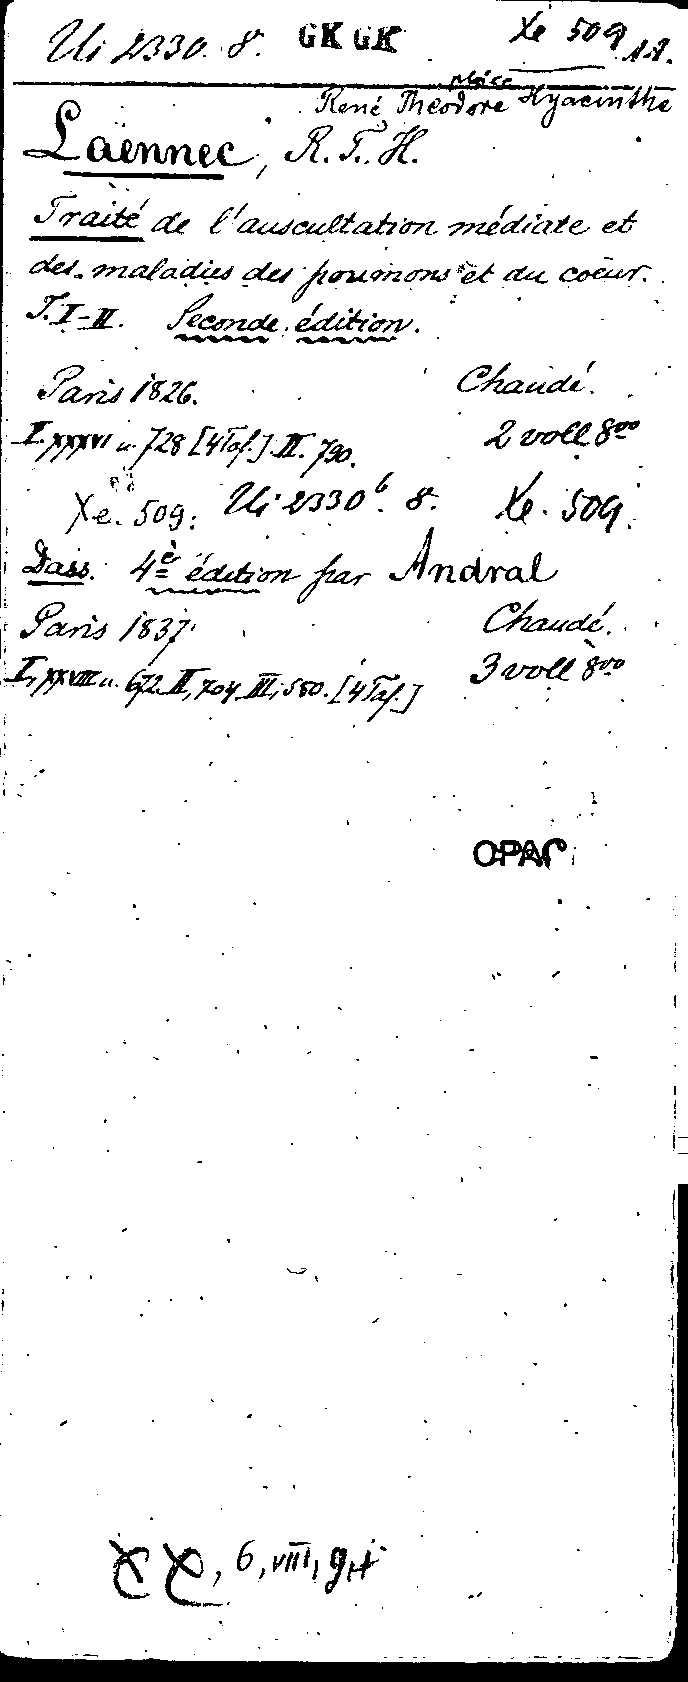 Ui 2330. 8. GK GK Xe 509 A.A.
René Théodore Hyacinthe
Laënnec, R. T. H.
Traité de l'auscultation médiate et
des maladies des poumons et du coeur.
T. I-II. Seconde édition.
Paris 1826. Chaudé.
I. XXXVI u. 728 [4 Taf.]. II. 790. 2 voll 8vo
Xe. 509. Ui 2330 b. 8. Xe. 509.
Dass. 4e édition par Andral
Paris 1837. Chaudé.
I, XXVIII u. 672. II, 704. III, 550. [4 Taf.] 3 voll 8vo
OPAC
6, VIII,